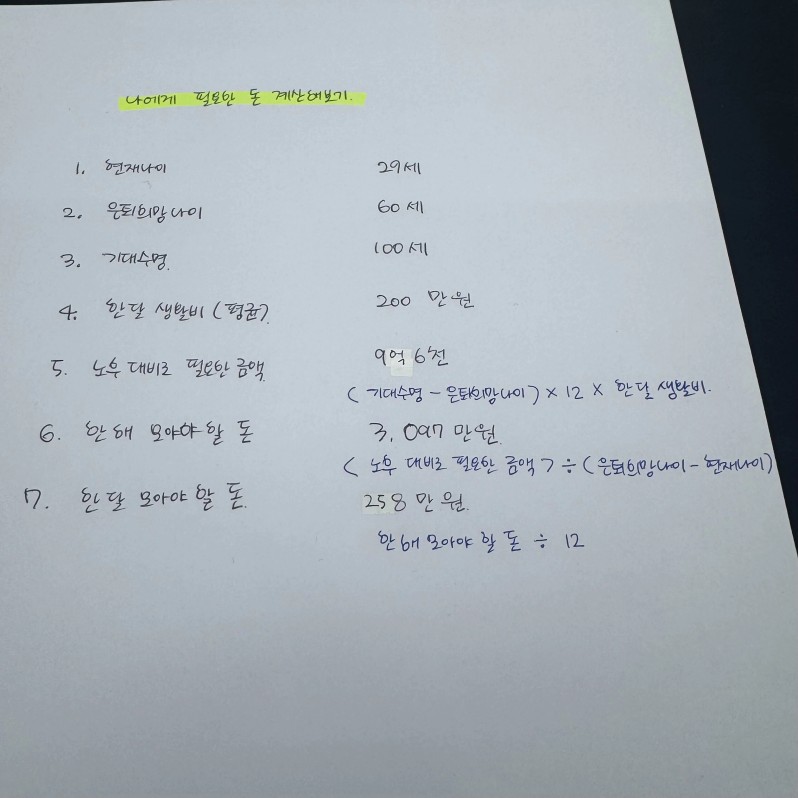 나에게 필요한 돈 계산해보기.
1. 현재나이 29세
2. 은퇴희망나이 60세
3. 기대수명. 100세
4. 한달 생활비(평균). 200 만원
5. 노후 대비로 필요한 금액. 9억 6천
(기대수명 - 은퇴희망나이) × 12 × 한달 생활비.
6. 한해 모아야 할 돈 3,097 만원.
(노후 대비로 필요한 금액) ÷ (은퇴희망나이 - 현재나이)
7. 한달 모아야 할 돈. 258 만원.
한해 모아야 할 돈 ÷ 12